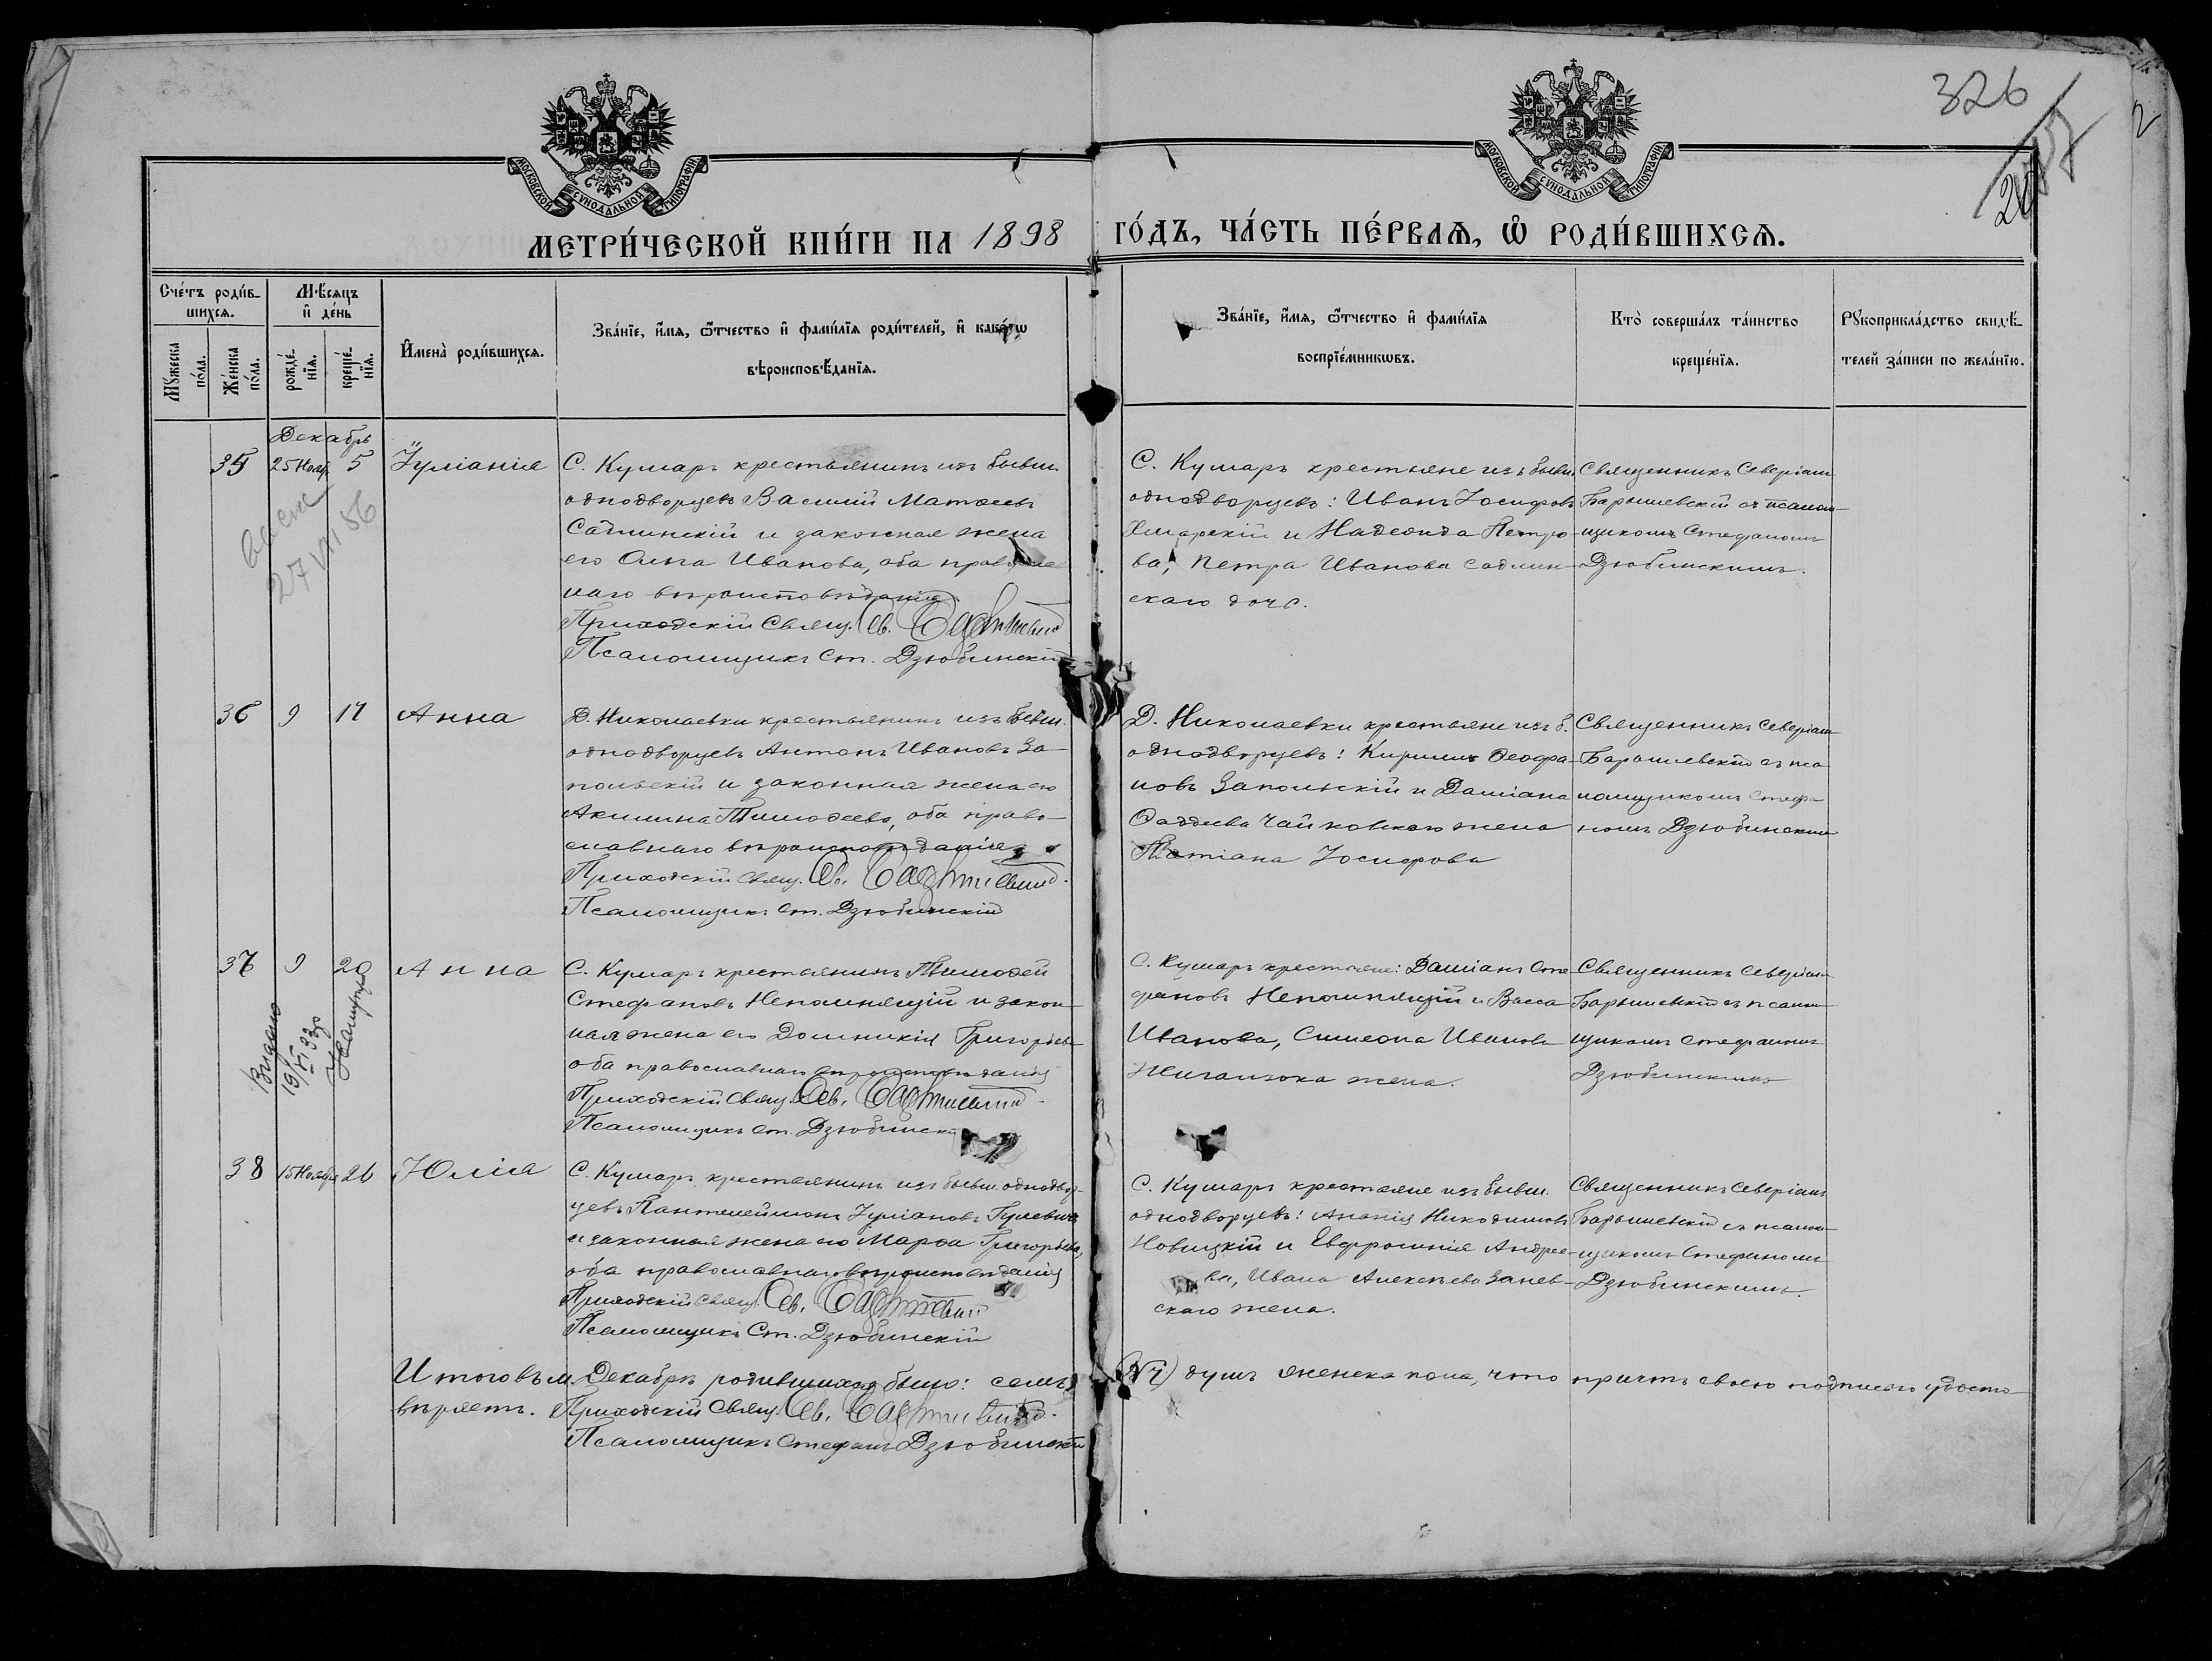 326
2
МОСКОВСКОЙ СѴНОДАЛЬНОЙ ТИПОГРАФІИ
МОСКОВСКОЙ СѴНОДАЛЬНОЙ ТИПОГРАФІИ
МЕТРИ́ЧЕСКОЙ КНИ́ГИ НА 1898 ГО́ДЪ, ЧА́СТЬ ПЕ́РВАѦ, Ѽ РОДИ́ВШИХСѦ.
Сче́тъ роди́в-
шихсѧ.
Мꙋжеска по́ла.
Же́нска по́ла.
Мѣ́сѧцъ
и҆ де́нь
рожде́-
нїѧ.
креще́-
нїѧ.
И҆мена̀ роди́вшихсѧ.
Зва́нїе, и҆́мѧ, ѻ҆́тчество и҆ фамѝлїѧ роди́телей, и҆ како́гѡ
вѣроисповѣ́данїѧ.
Зва́нїе, и҆́мѧ, ѻ҆́тчество и҆ фамѝлїѧ
воспрїе́мникѡвъ.
Кто̀ соверша́лъ та́инство
креще́нїѧ.
Рꙋкоприкла́дство свидѣ́-
телей за́писи по жела́нїю.
Декабрь
35 25 Нояб. 5 Іуліанія
С. Кумаръ крестьянинъ изъ бывш.
однодворцевъ Василій Матѳеевъ
и законная жена
его Анна Иванова, оба православ
наго вѣроисповѣданія.
Приходскій Свящ. Св.
Псаломщикъ Ст. Дзюбинскій
С. Кумаръ крестьяне изъ бывш.
однодворцевъ: Иванъ Іосифовъ
Хмарскій и Надежда Петро-
ва, Петра Иванова
скаго дочь.
Священникъ Северіанъ
Барышевскій съ псалом-
щикомъ Стефаномъ
Дзюбинскимъ.
27 VII 56
36 9 17 Анна
Д. Николаевки крестьянинъ изъ бывш.
однодворцевъ Антонъ Ивановъ За-
польскій и законная жена его
Акилина Тимоѳеева, оба право-
славнаго вѣроисповѣданія
Приходскій Свящ. Св.
Псаломщикъ Ст. Дзюбинскій
Д. Николаевки крестьяне изъ б.
однодворцевъ: Кириллъ Ѳеофа-
новъ Запольскій и Даміана
Ѳаддеева Чайковскаго жена
Татіана Іосифова
Священникъ Северіанъ
Барышевскій съ пса
ломщикомъ Стефа
номъ Дзюбинскимъ
37 9 20 Анна
С. Кумаръ крестьянинъ Тимоѳей
Стефановъ Непомнящій и закон-
ная жена его Домникія Григорьева
оба православнаго вѣроисповѣданія
Приходскій Свящ. Св.
Псаломщикъ Ст. Дзюбинскій
С. Кумаръ крестьяне: Даміанъ Сте-
фановъ Непомнящій и Васса
Иванова, Симеона Иванова
жена.
Священникъ Северіанъ
Барышевскій съ псалом-
щикомъ Стефаномъ
Дзюбинскимъ
Видано
19/VI 33р
38 15 Ноября 26 Юлія
С. Кумаръ крестьянинъ изъ бывш. однодвор-
цевъ Пантелеймонъ Іуліановъ Гулевичъ
и законная жена его Марѳа Григорьева,
оба православнаго вѣроисповѣданія
Приходскій Свящ. Св.
Псаломщикъ Ст. Дзюбинскій
С. Кумаръ крестьяне изъ бывш.
однодворцевъ: Ананія Никодимовъ
Новицкій и Евфросинія Андрее-
ва, Ивана Алексѣева Занев-
скаго жена.
Священникъ Северіанъ
Барышевскій съ псалом-
щикомъ Стефаномъ
Дзюбинскимъ.
Итого въ м. Декабрѣ родившихся было: семь (№7) душъ женска пола, что причтъ своею подписью удосто-
вѣряетъ. Приходскій Свящ. Св.
Псаломщикъ Стефанъ Дзюбинскій